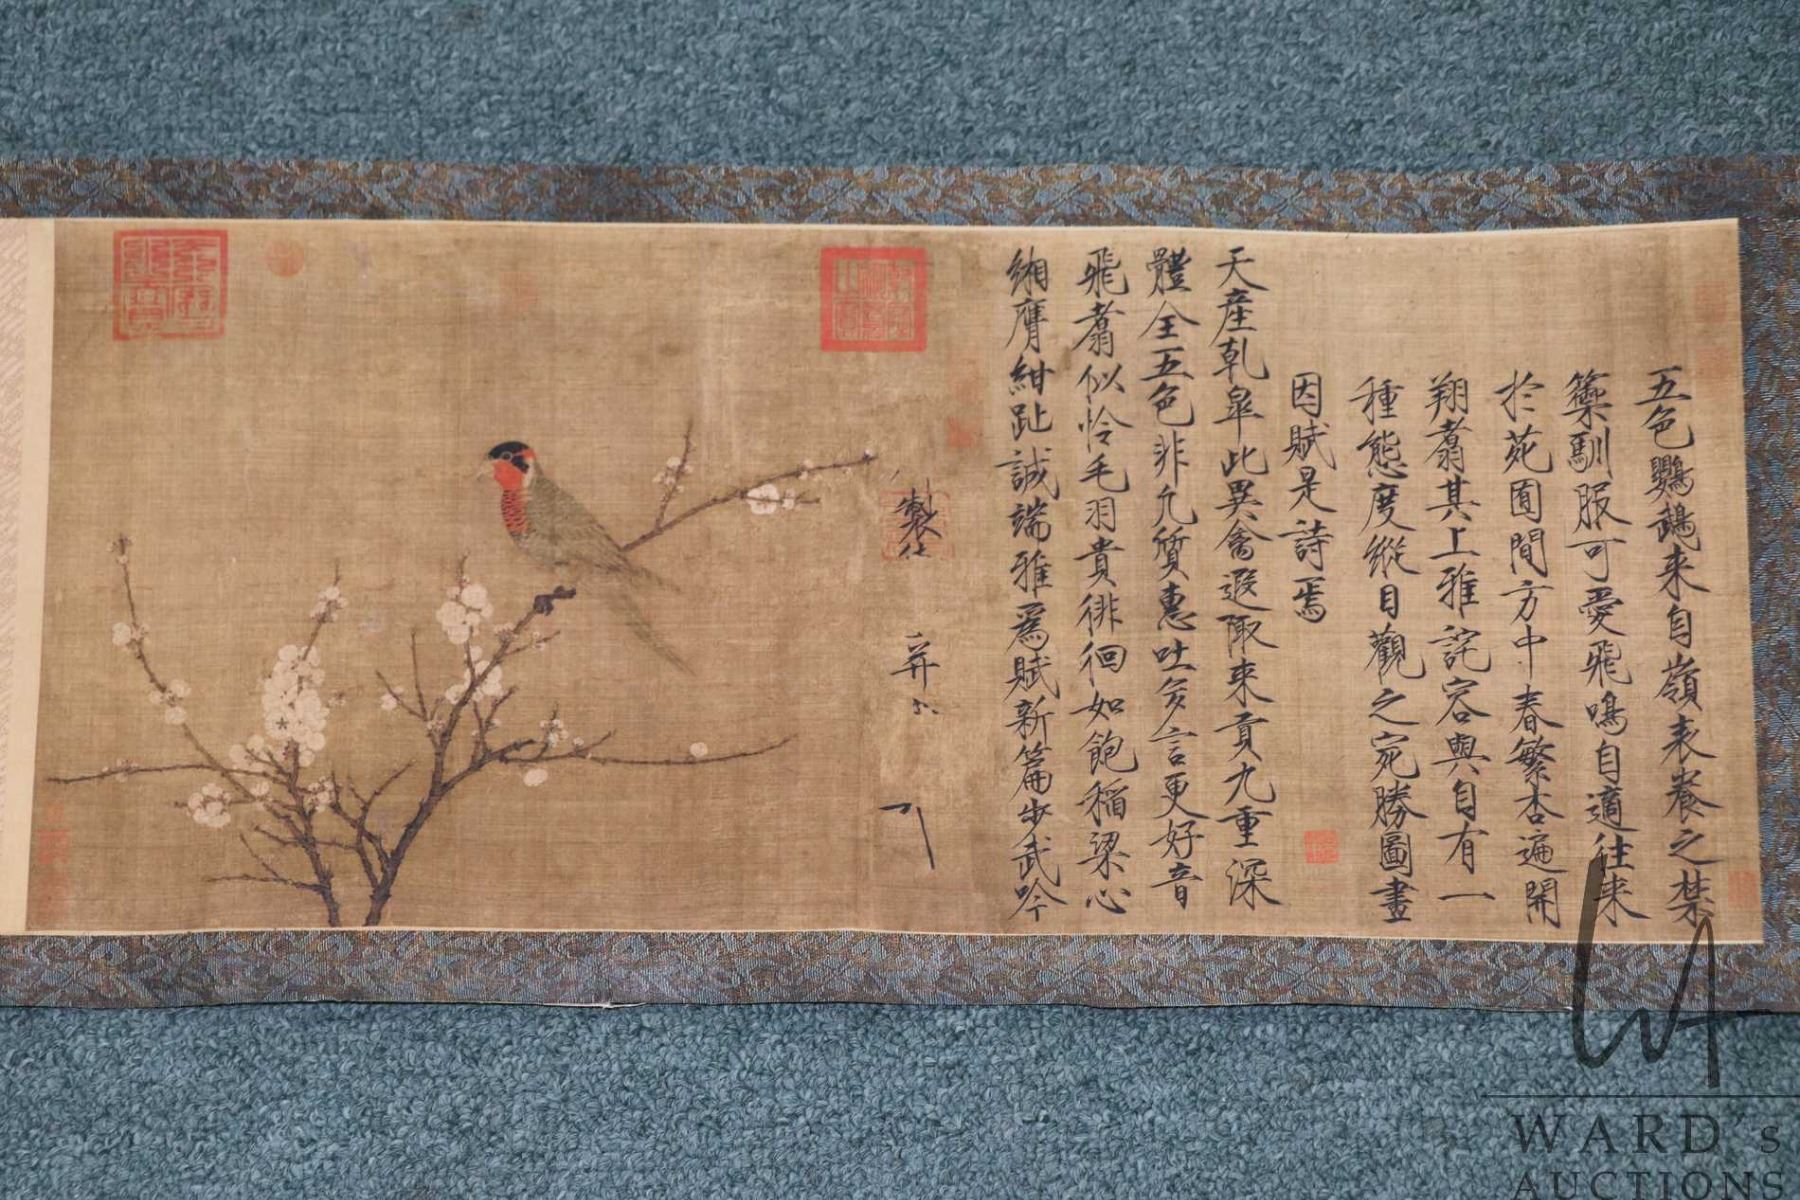 五色鸚鵡来自嶺表養之禁
籞馴服可愛飛鳴自適往来
於苑囿間方中春繁杏遍開
翔翥其上雅詫容與自有一
種態度縱目觀之宛勝圖畫
因賦是詩焉
天産乾皋此異禽遐陬来貢九重深
體全五色非凡質惠吐多言更好音
飛翥似怜毛羽貴徘徊如飽稲梁心
緗膺紺趾誠端雅爲賦新篇步武吟
製
WARD's
AUCTIONS